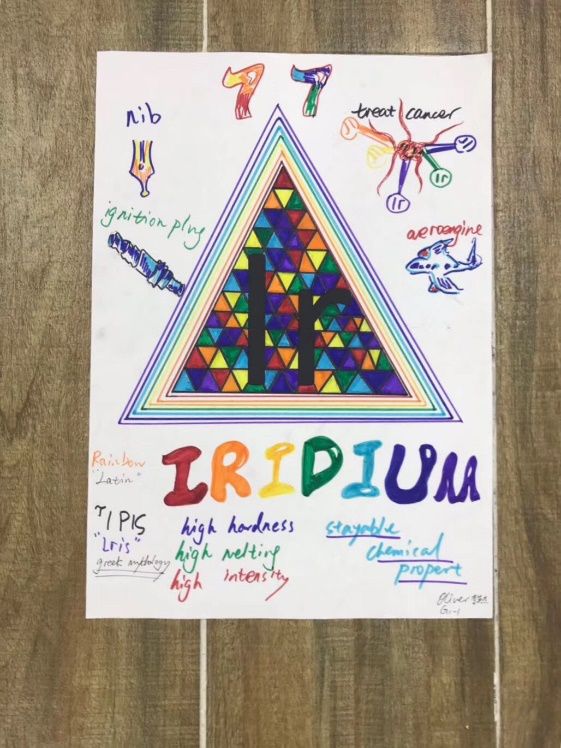 77
nib
treat cancer
Ir
Ir
ignition plug
aeroengine
Ir
IRIDIUM
Rainbow
"Latin"
"Iris"
greek mythology
high hardness
high melting
high intensity
stayable
chemical
propert
Oliver
G1-1